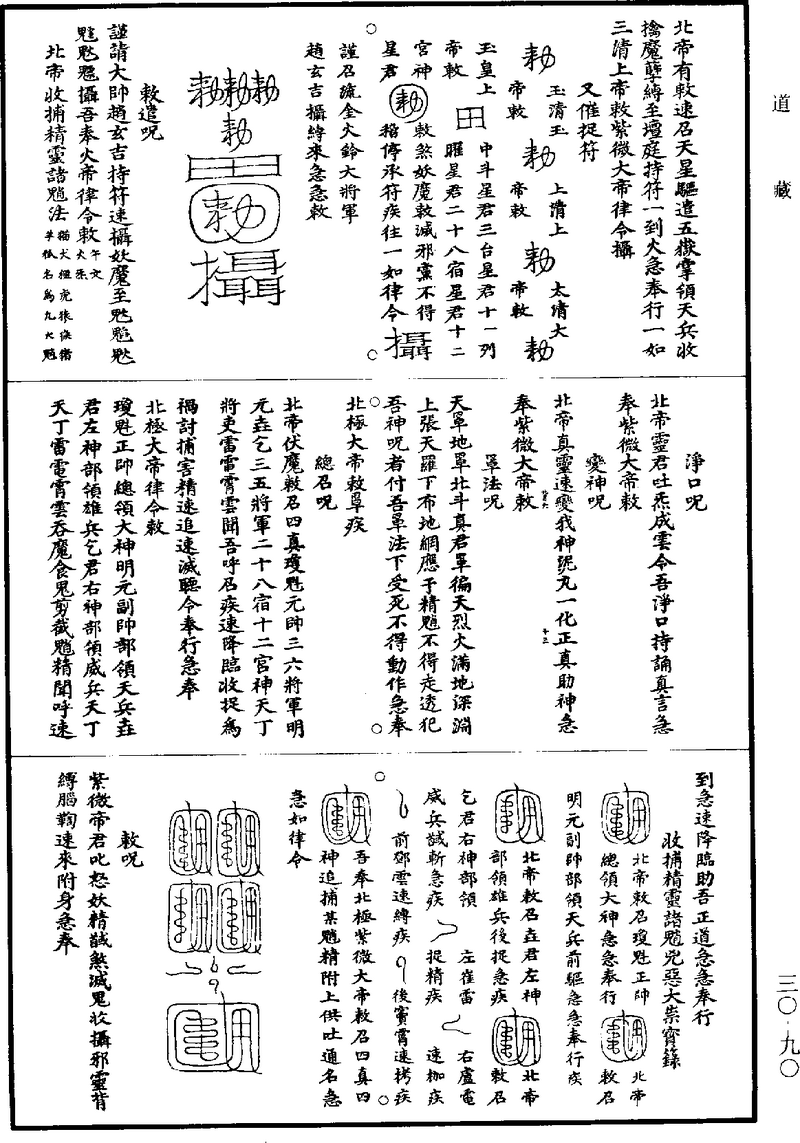 道藏
北帝有敕速召天星驅遣五嶽掌領天兵收
擒魔孽縛至壇庭持符一到火急奉行一如
三清上帝敕紫微大帝律令攝
又催捉符
勑 玉清玉帝敕 勑 上清上帝敕 勑 太清大帝敕 勑
玉皇上帝敕 中斗星君三台星君十一列
曜星君二十八宿星君十二
宮神星君 敕煞妖魔敕滅邪黨不得
稽停承符疾往一如律令 攝
謹召流金火鈴大將軍
趙玄吉攝縛來急急敕
勑勑勑
勑
勑
攝
敕遣呪
謹請大帥趙玄吉持符速攝妖魔至
攝吾奉火帝律令敕
北帝收捕精靈諸魈法
淨口呪
北帝靈君吐炁成雲令吾淨口持誦真言急
奉紫微大帝敕
變神呪
北帝真靈速變我神泥丸一化正真助神急
奉紫微大帝敕
罩法呪
天罩地罩北斗真君罩徧天烈火滿地深淵
上張天羅下布地網應于精魈不得走透犯
吾神呪者付吾罩法下受死不得動作急奉
北極大帝敕罩疾
總召呪
北帝伏魔敕召四真瓊魁元帥三六將軍明
元垚乞三五將軍二十八宿十二宮神天丁
將吏雷雷霄雲聞吾呼召疾速降臨收捉為
禍討捕害精速追速滅聽令奉行急奉
北極大帝律令敕
瓊魁正帥總領大神明元副帥部領天兵垚
君左神部領雄兵乞君右神部領威兵天丁
天丁雷電霄雲吞魔食鬼剪截魈精聞呼速
到急速降臨助吾正道急急奉行
收捕精靈諸魈兇惡大祟寶籙
北帝敕召瓊魁正帥
總領大神急急奉行
北帝敕召
明元副帥部領天兵前驅急急奉行疾
北帝敕召垚君左神
部領雄兵後捉急疾
北帝敕召
乞君右神部領
威兵馘斬急疾
左崔雷捉精疾
右盧電速枷疾
前鄧雲速縛疾
後竇霄速拷疾
吾奉北極紫微大帝敕召四真四
神追捕某魈精附上供吐通名急
急如律令
敕呪
紫微帝君叱怒妖精馘煞滅鬼收攝邪靈背
縛腦鞫速來附身急奉
三〇·九〇